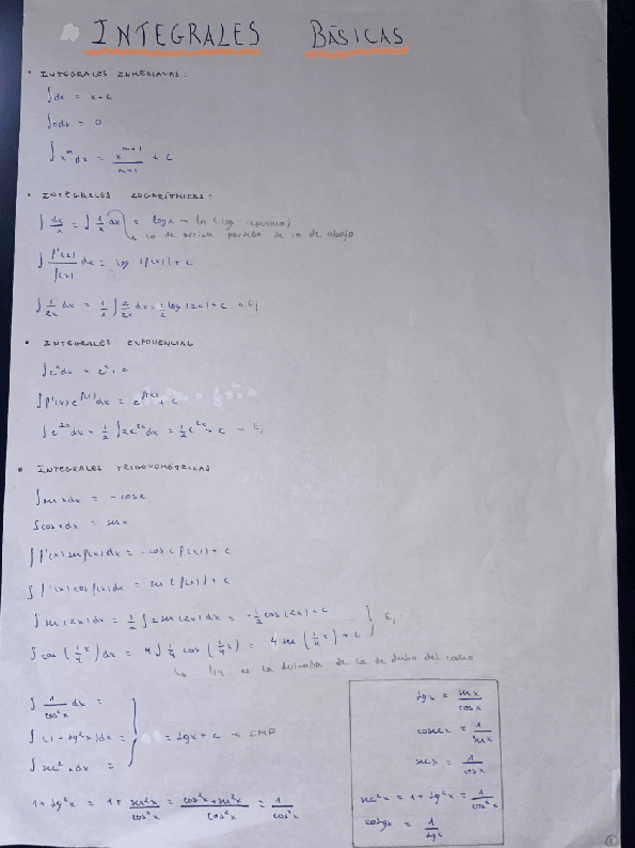 INTEGRALES BÁSICAS
• INTEGRALES INMEDIATAS:
∫dx = x+c
∫cdx = 0
∫x^m dx = x^(m+1)/(m+1) + c
• INTEGRALES LOGARÍTMICAS:
∫dx/x = ∫1/x dx = logx → ln (log neperiano)
↳ lo de arriba partido de lo de abajo
∫f'(x)/f(x) dx = log |f(x)| + c
∫1/2x dx = 1/2 ∫2/2x dx = 1/2 log |2x| + c → Ej
• INTEGRALES EXPONENCIAL
∫e^x dx = e^x + c
∫f'(x) e^f(x) dx = e^f(x) + c
∫e^2x dx = 1/2 ∫2e^2x dx = 1/2 e^2x + c → Ej
• INTEGRALES TRIGONOMÉTRICAS
∫sen x dx = -cosx
∫cosx dx = senx
∫f'(x) sen f(x) dx = -cos (f(x)) + c
∫f'(x) cos f(x) dx = sen (f(x)) + c
∫sen(2x)dx = 1/2 ∫2 sen(2x)dx = -1/2 cos(2x) + c
∫cos(1/4 x)dx = 4∫1/4 cos(1/4 x) = 4 sen(1/4 x) + c } Ej.
↳ 1/4 es la derivada de lo de dentro del coseno
∫1/cos²x dx =
∫(1+tg²x)dx = } = tgx + c → IMP
∫sec²x dx =
1+tg²x = 1+ sen²x/cos²x = cos²x+sen²x/cos²x = 1/cos²x
tgx = senx/cosx
cosecx = 1/senx
secx = 1/cosx
sec²x = 1+tg²x = 1/cos²x
cotgx = 1/tgx